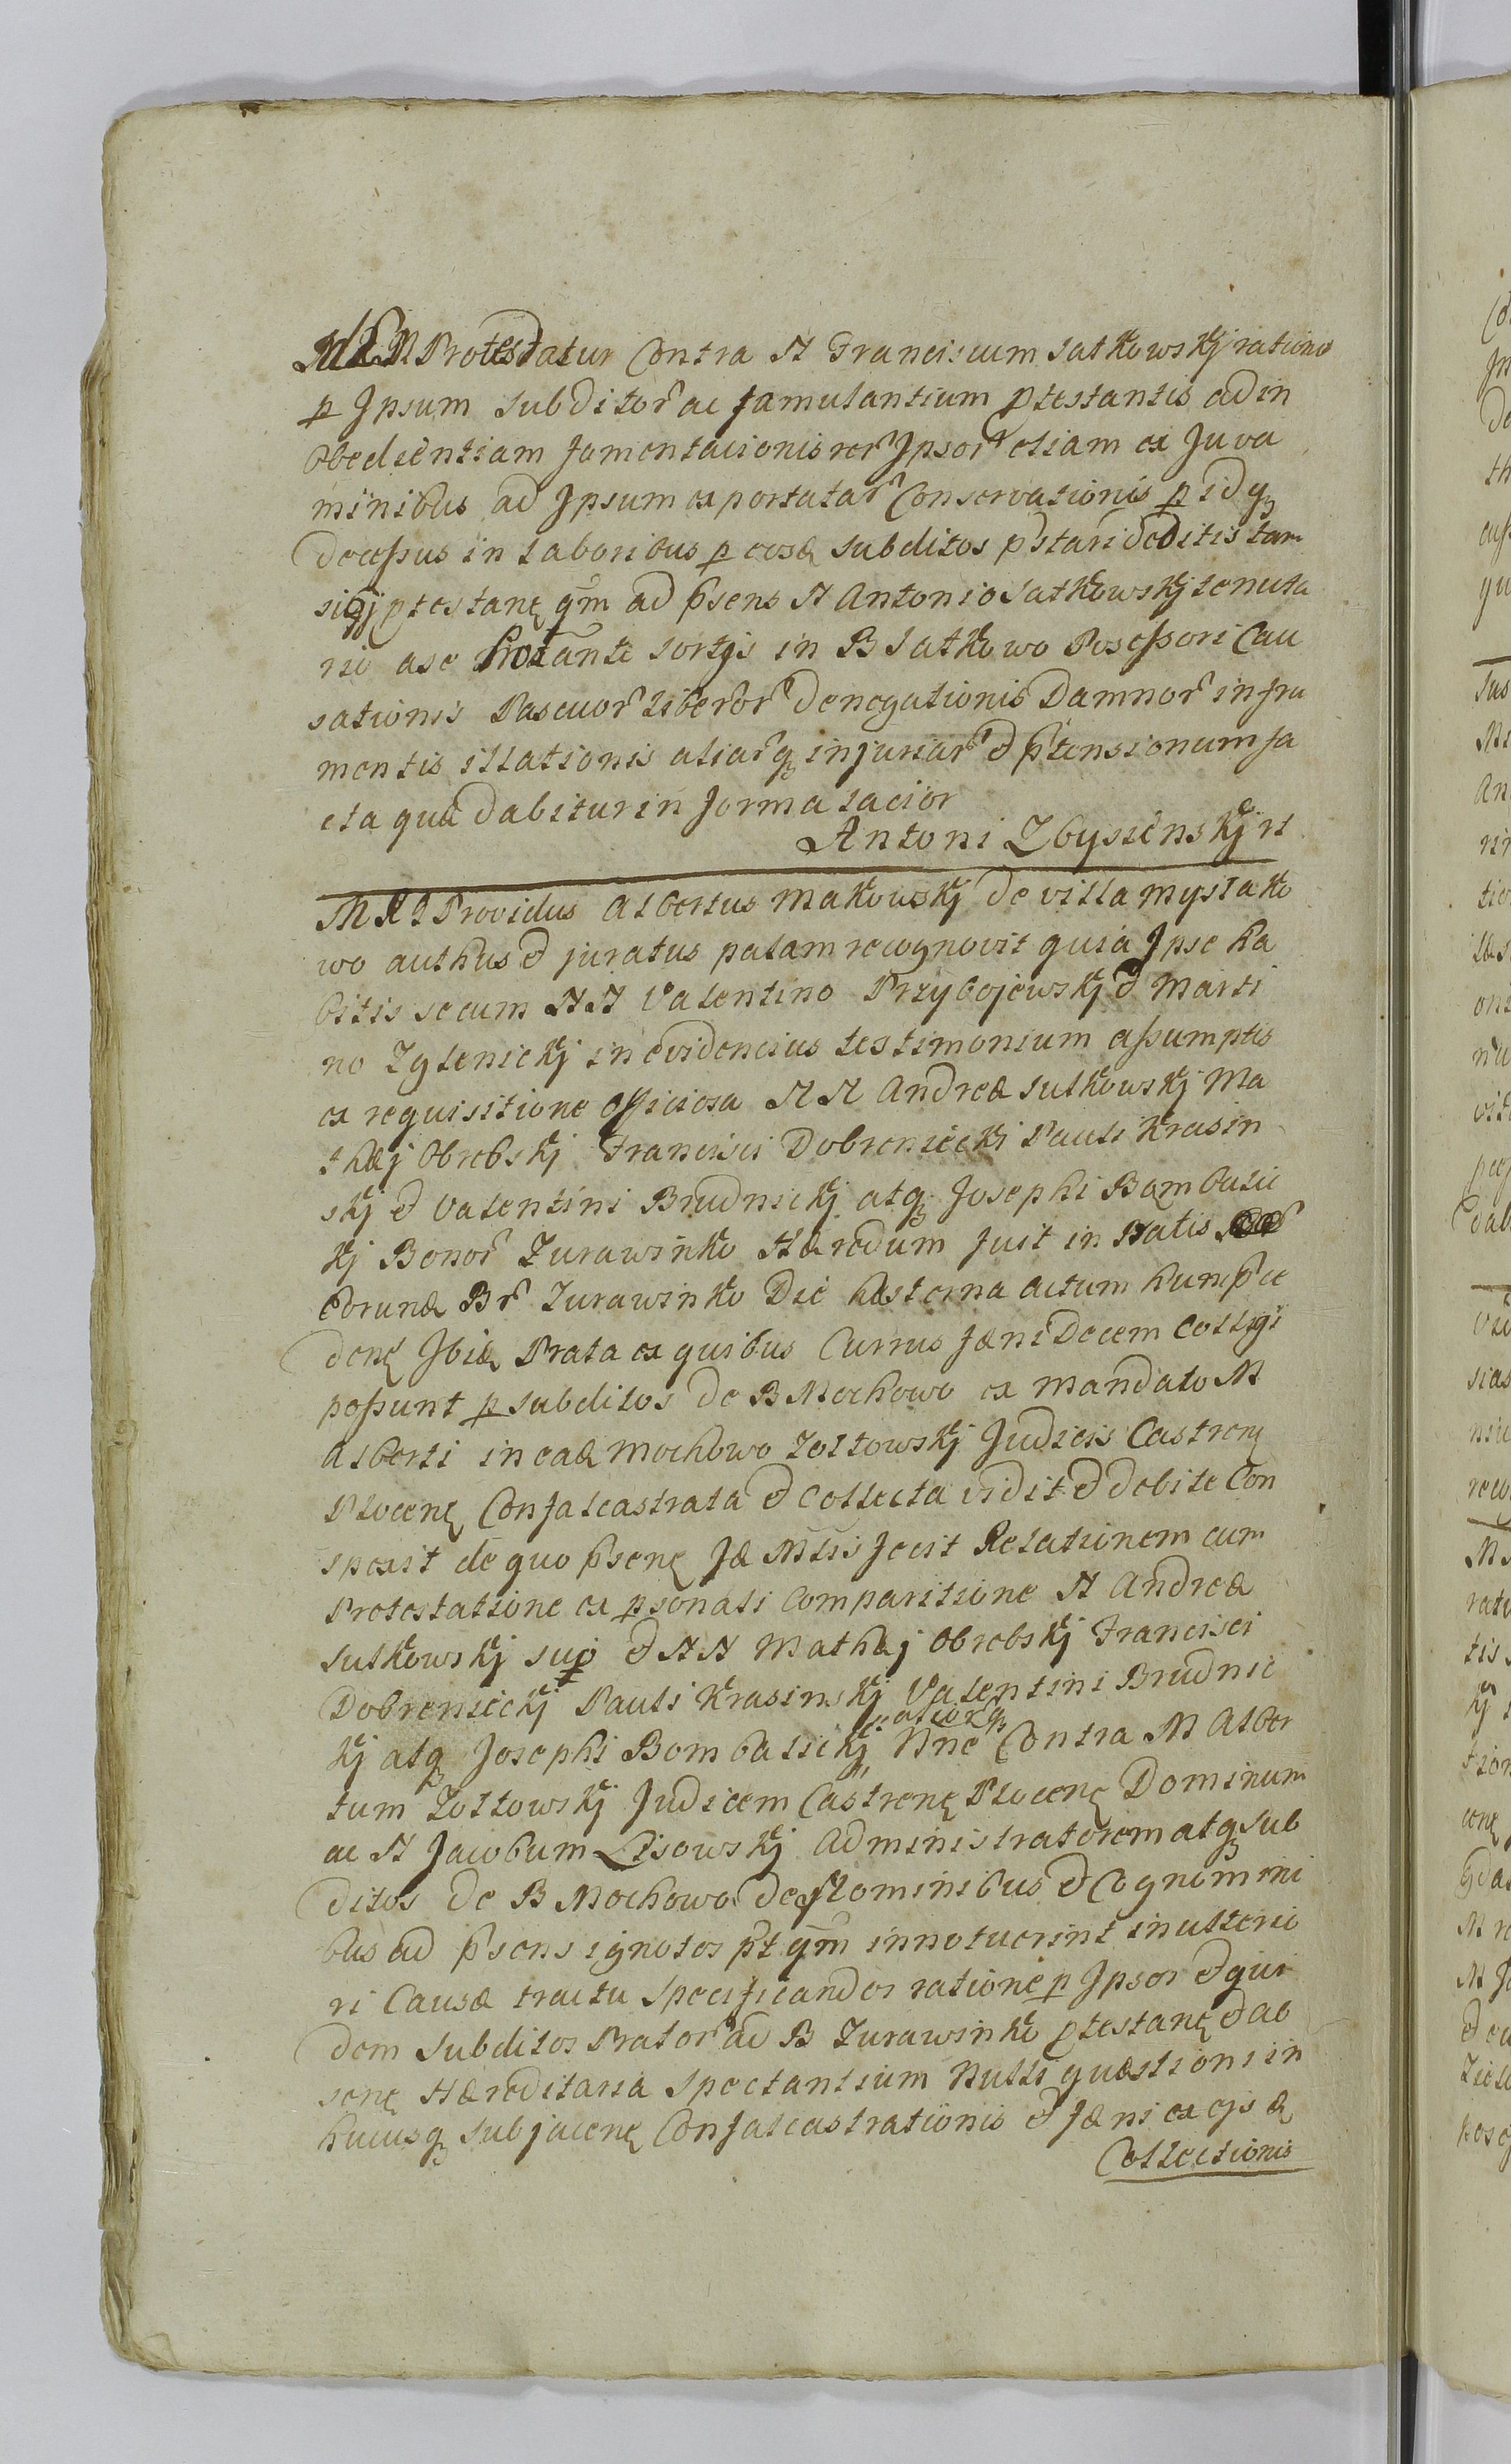 Protestatur Contra N Franciscum Sutkowskj ratione
p Ipsum Subditor ac famulantium ptestantis ad in
obedientiam fomentacionis rer Ipsor etiam ex Juva
minibus ad Ipsum exportatar Conservationis p idq
decessus in laboribus p eosd subditos pstari deditis tam
ptestane qm ad psens N Antonio Sutkowskj tenuta
rio a se Protante sortis in B Sutkowo Possessori Cau
sationis Pascuor liberor denegationis Damnor in fru
mentis illationis aliarq injuriar & ptensionum fa
cta qua dabitur in forma lacior
Antoni Zbysinskj
Providus Albertus Makowskj de villa Myslako
wo authus & juratus palam recognovit quia Ipse ha
bitis secum NN Valentino Przybojewskj & Marti
no Zglenickj in evidencius testimonium assumptis
ex requisitione officiosa NN Andreæ Sutkowskj Ma
thæj Obrebskj Francisci Dobrenieckj Pauli Krasin
skj & Valentini Brudnickj atq Josephi Bombalic
kj Bonor Zurawinko Hæredum fuit in Natis
eorund Br Zurawinko Die hesterna actum hum pce
dene Ibid Prata ex quibus Currus fæni Decem Colligi
possunt p subditos de B Mochowo ex mandato M
Alberti in ead Mochowo Zoltowskj Judicis Castrene
Plocene Confalcastrata & Collecta vidit & debite Con
spexit de quo psene fecit Relationem cum
Protestatione ex psonali Comparitione N Andreæ
Sutkowskj sup & NN Mathæj Obrebskj Francisci
Dobrenieckj Pauli Krasinskj Valentini Brudnic
kj atq Josephi Bombalickj Nne Contra M Alber
tum Zoltowskj Judicem Castrene Plocene Dominum
ac N Jacobum Lisowskj Administratorem atq Sub
ditos de B Mochowo de Nominibus & Cognomini
bus ad psens ignotos pt qm innotuerint in ulterio
ri Causæ tractu Specificandos ratione p Ipsos & qui
dem Subditos Prator ad B Zurawinko ptestane & ab
sene Hæreditaria Spectantium Nulli quæstioni in
hucusq subjacene Confalcastrationis & fæni ex eisd
Collectionis